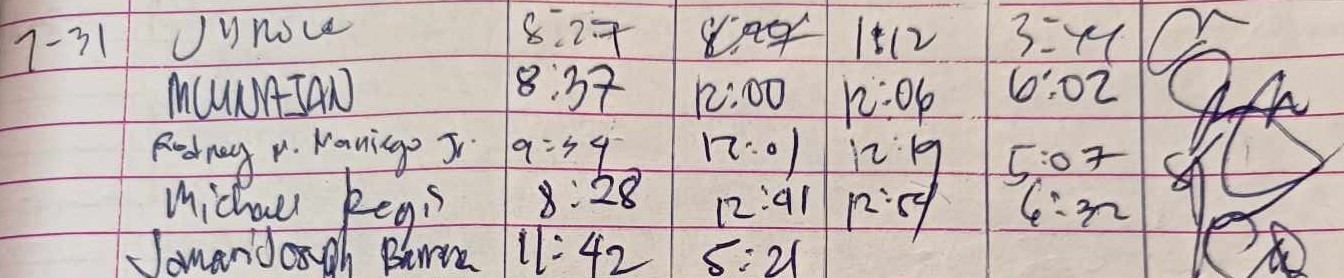 7-31 8:27 1:12 3:44
8:37 12:00 12:06 6:02
Rodney M. Maniego Jr. 9:54 12:01 12:19 5:07
Michael Regis 8:28 12:41 12:54 6:32
Joseph 11:42 5:21